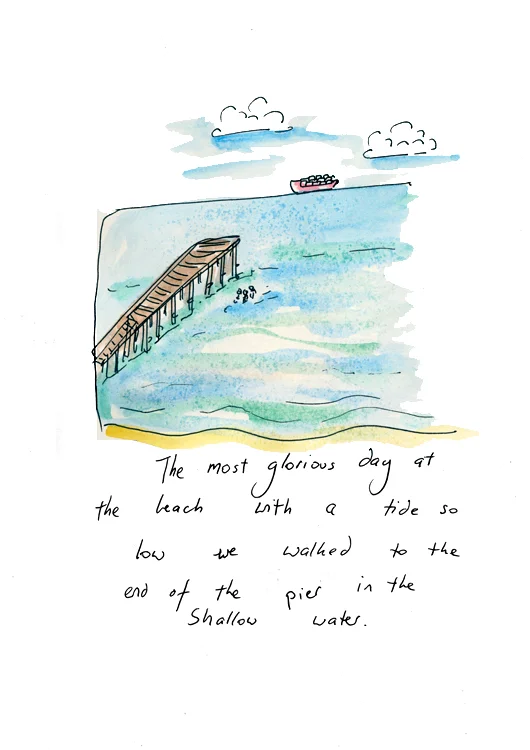 The most glorious day at
the beach with a tide so
low we walked to the
end of the pier in the
Shallow water.